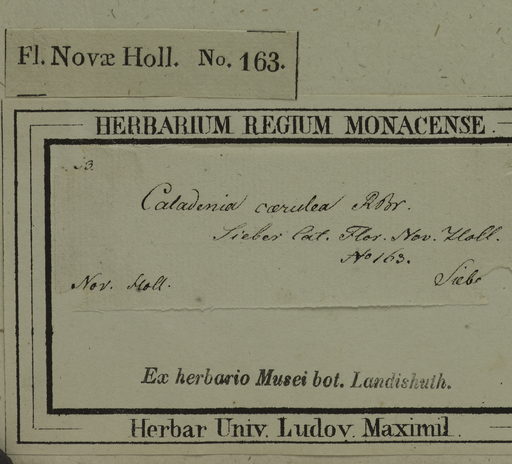 Fl. Novæ Holl. No. 163.
HERBARIUM REGIUM MONACENSE.
Caladenia cærulea RBr.
Sieber Cat. Flor. Nov. Holl.
No 163.
Nov. Holl. Siebe
Ex herbario Musei bot. Landishuth.
Herbar Univ. Ludov. Maximil.